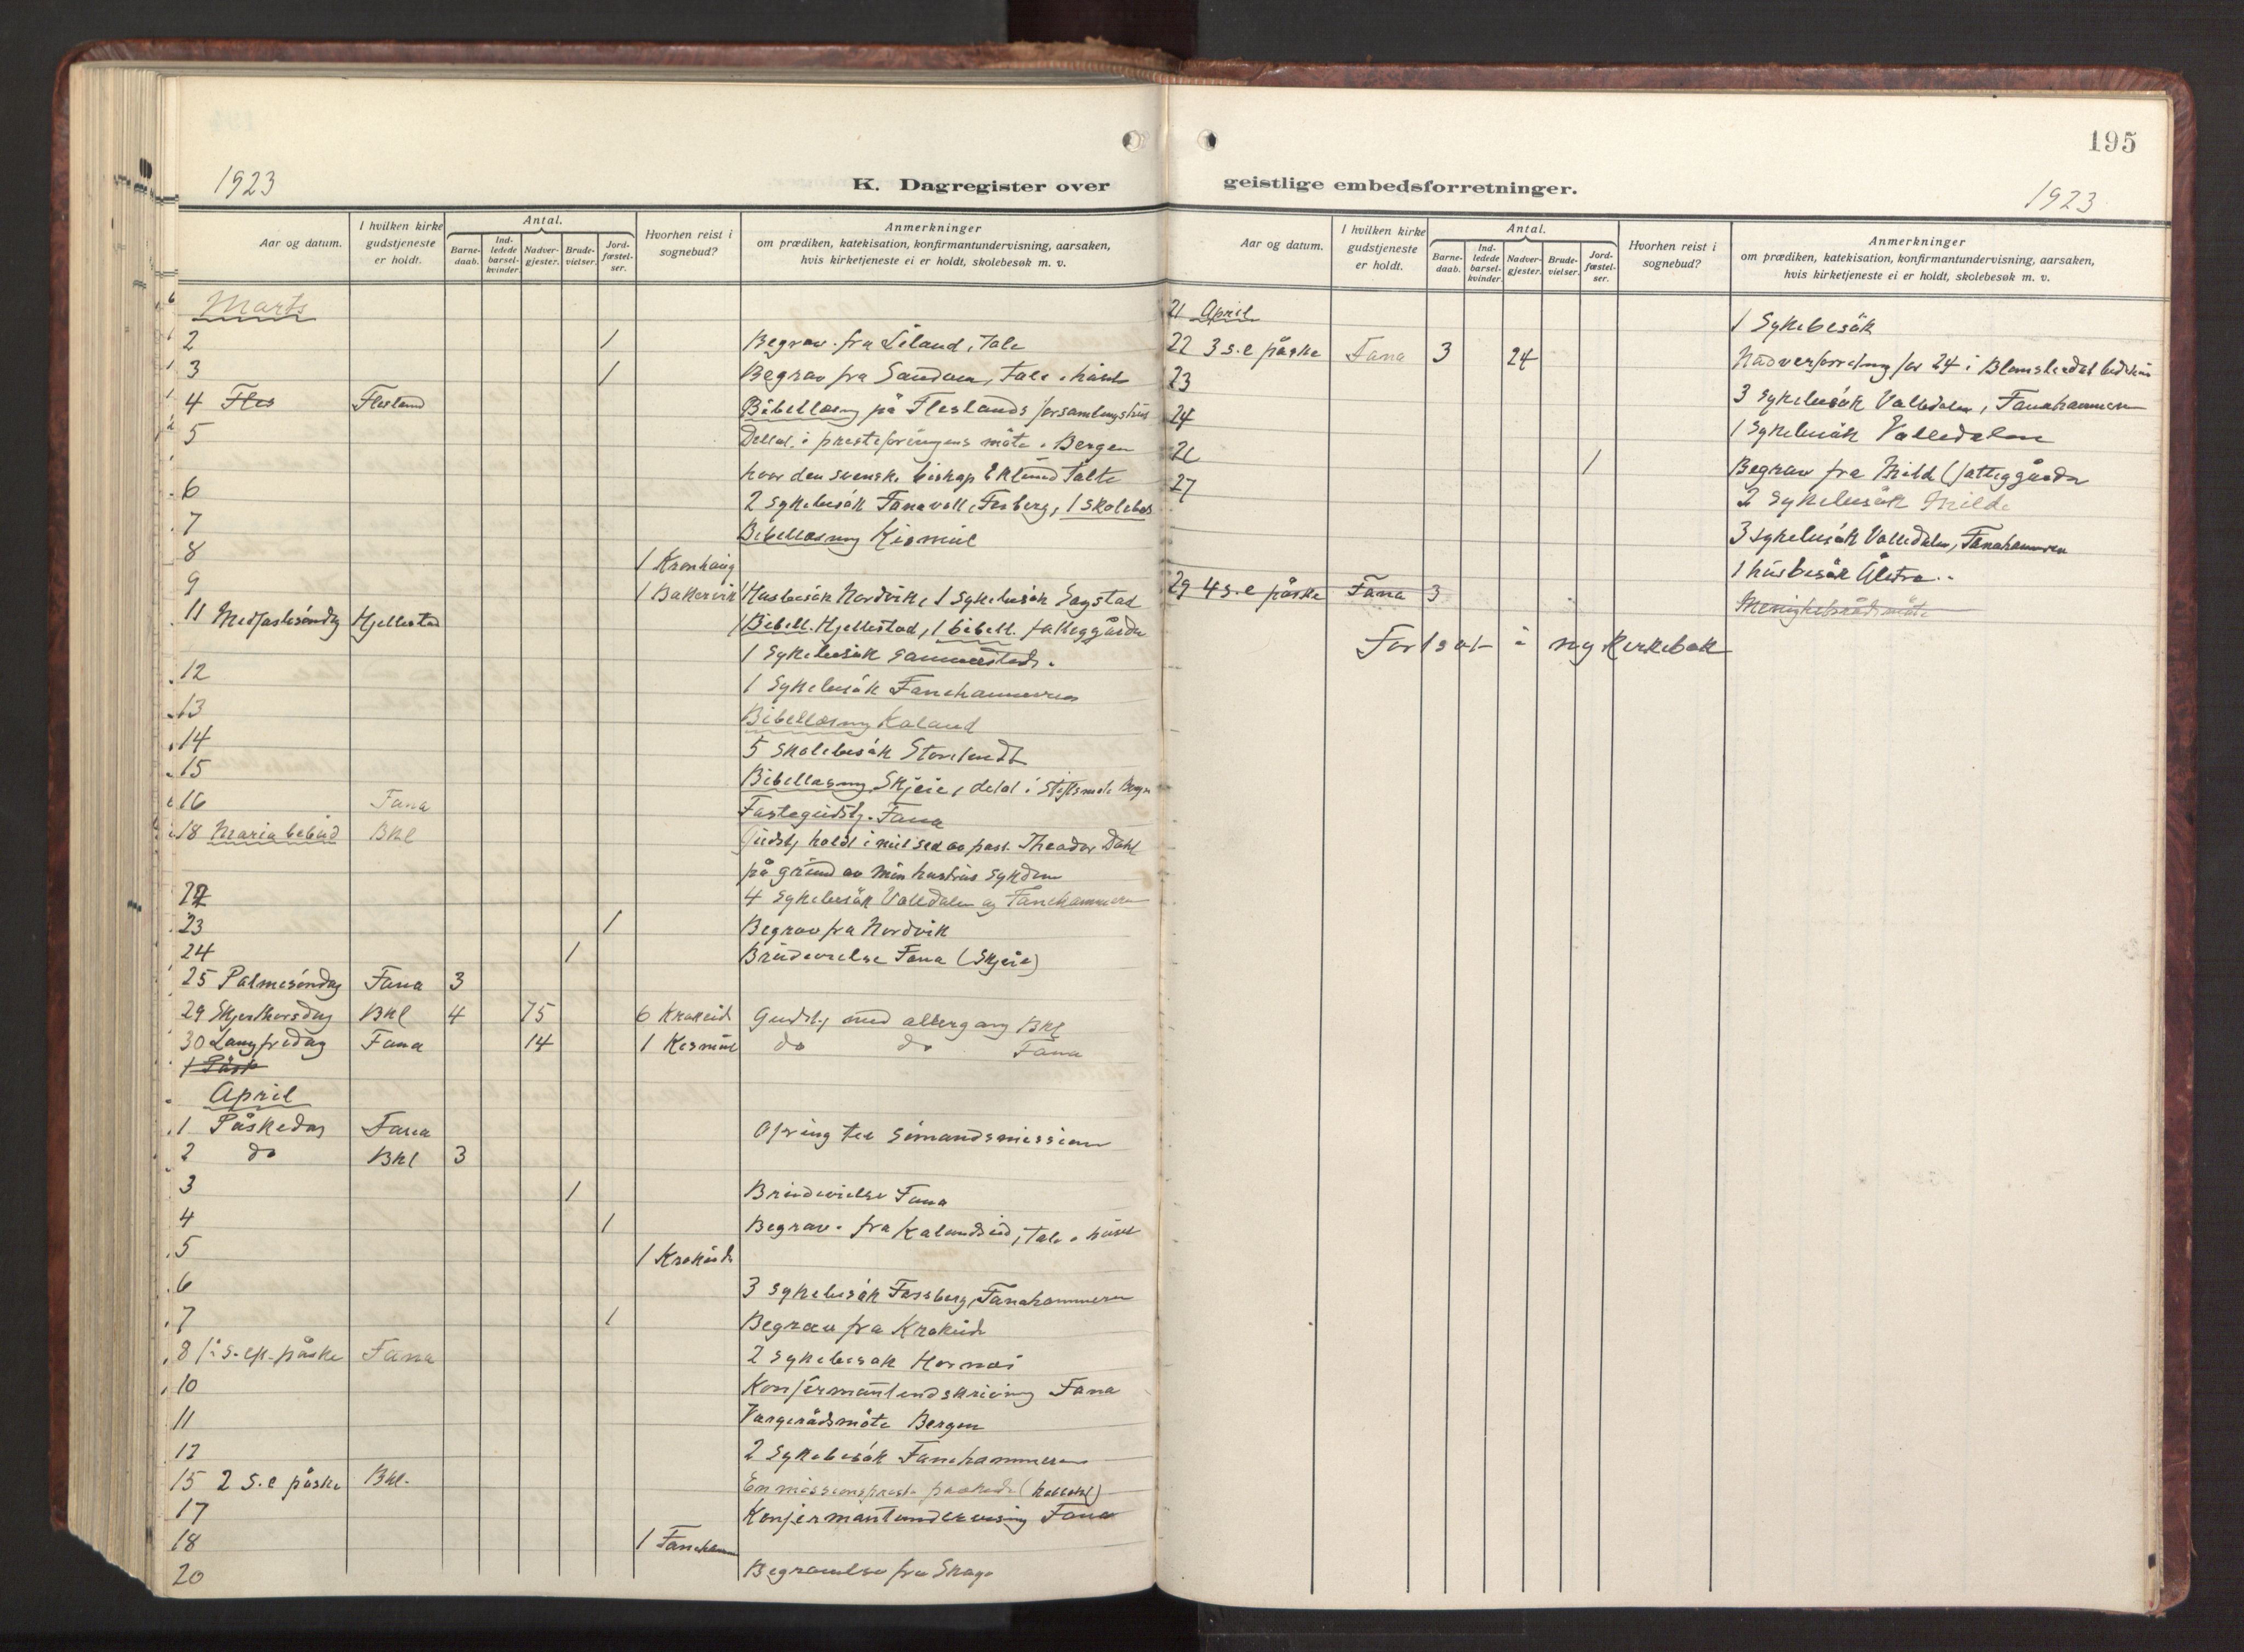 1923
K. Dagregister over
Aar og datum.
I hvilken kirke gudstjeneste er holdt.
Antal.
Barne-daab.
Ind-ledede barsel-kvinder.
Nadver-gjester.
Brude-vielser.
Jord-fæstel-ser.
Hvorhen reist i sognebud?
Anmerkninger
om prædiken, katekisation, konfirmantundervisning, aarsaken,
hvis kirketjeneste ei er holdt, skolebesøk m. v.
Marts
2 1 Begrav. fra Liland, tale
3 1 Begrav fra tale i huset
4 Fles Flesland Bibellæsning på Fleslands forsamlingshus
5 Deltat i presteforingens møte i Bergen
hvor den svenske biskop Eklund talte
6 2 sykebesøk Fanavoll, Fosberg, 1 skolebes
7 Bibellæsning Kismul
8 1 Kronhaug
9 1 Bakervik Husbesøk Nordvik, 1 sykebesøk Søgstad
11 Midfastesøndag Hjellestad 1 Bibell. Hjellestad, 1 bibell. fattiggården
1 Sykebesøk sammesteds.
12 1 Sykebesøk Fanehammeren
13 Bibellæsning Kaland
14 5 skolebesøk Storetvedt
15 Bibellæsning Skjeie, deltat i Stiftsmøte Bergn
16 Fana Fastegudstj. Fana
18 Maria bebud BKL Gudstj holdt i mit sted av past. Theodor Dahl
på grund av min hustrus sykdom
22 4 Sykebesøk Valledalen og Fanehammeren
23 1 Begrav fra Nordvik
24 1 Brudevielse Fana (Skjeie)
25 Palmesøndag Fana 3
29 Skjærthorsdag BKl 4 75 6 Krokeid Gudstj med altergang BKl
30 Langfredag Fana 14 1 Kismul do do Fana
1 Påsk
April
1 Påskedag Fana Ofring til sømandsmissionen
2 do BKl 3
3 1 Brudevielse Fana
4 1 Begrav. fra Kalandseid, tale i huset
5 1 Krokeide
6 3 sykebesøk Fossberg, Fanahammeren
7 1 Begrav fra Krokeide
8 1ste S. ef. påske Fana 2 sykebesøk Hornæs
10 Konfirmantindskriving Fana
11 Vergerådsmøte Bergen
12 2 Sykebesøk Fanehammeren
15 2 S. e påske BKl. En missionsprest prækede
17 Konfirmantundervisning Fana
18 1 Fanehamm
20 Begravelse fra Skage
195
geistlige embedsforretninger.
1923
Aar og datum.
I hvilken kirke gudstjeneste er holdt.
Antal.
Barne-daab.
Ind-ledede barsel-kvinder.
Nadver-gjester.
Brude-vielser.
Jord-fæstel-ser.
Hvorhen reist i sognebud?
Anmerkninger
om prædiken, katekisation, konfirmantundervisning, aarsaken,
hvis kirketjeneste ei er holdt, skolebesøk m. v.
21 April 1 Sykebesøk
22 3 s. e påske Fana 3 24 Nadverforretning for 24 i Blomsterdal bedehus
23 3 sykebesøk Valledalen, Fanahammeren
24 1 Sykebesøk Valledalen
26 1 Begrav fra Milde (fattiggården
27 2 Sykebesøk Milde
3 sykebesøk Valledalen, Fanahammeren
1 husbesøk
29 4 s. e påske Fana 3 Menighetsrådsmøte
Fortsat i ny kirkebok